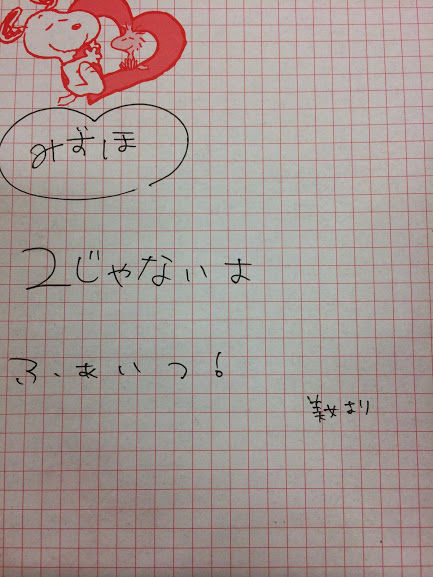 みずほ
2じゃないよ
ふぁいつ!
より